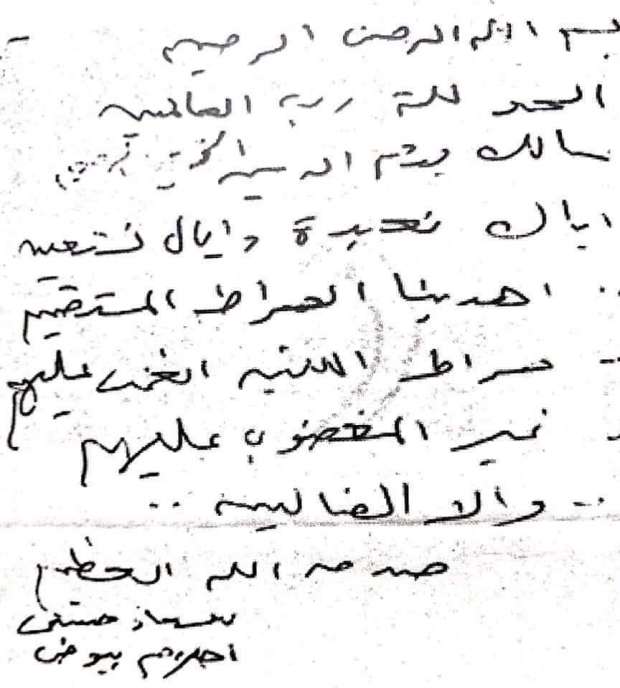 بسم الله الرحمن الرحيم
الحمد للة رب العالمين
مالك يوم الدين
اياك نعبدة واياك نستعين
.. اهدينا الصراط المستقيم
.. سراط اللذين انعمت عليهم
. غير المغضوب عليهم
.. والا الضالين ..
صدق الله العظيم
سعاد حسني